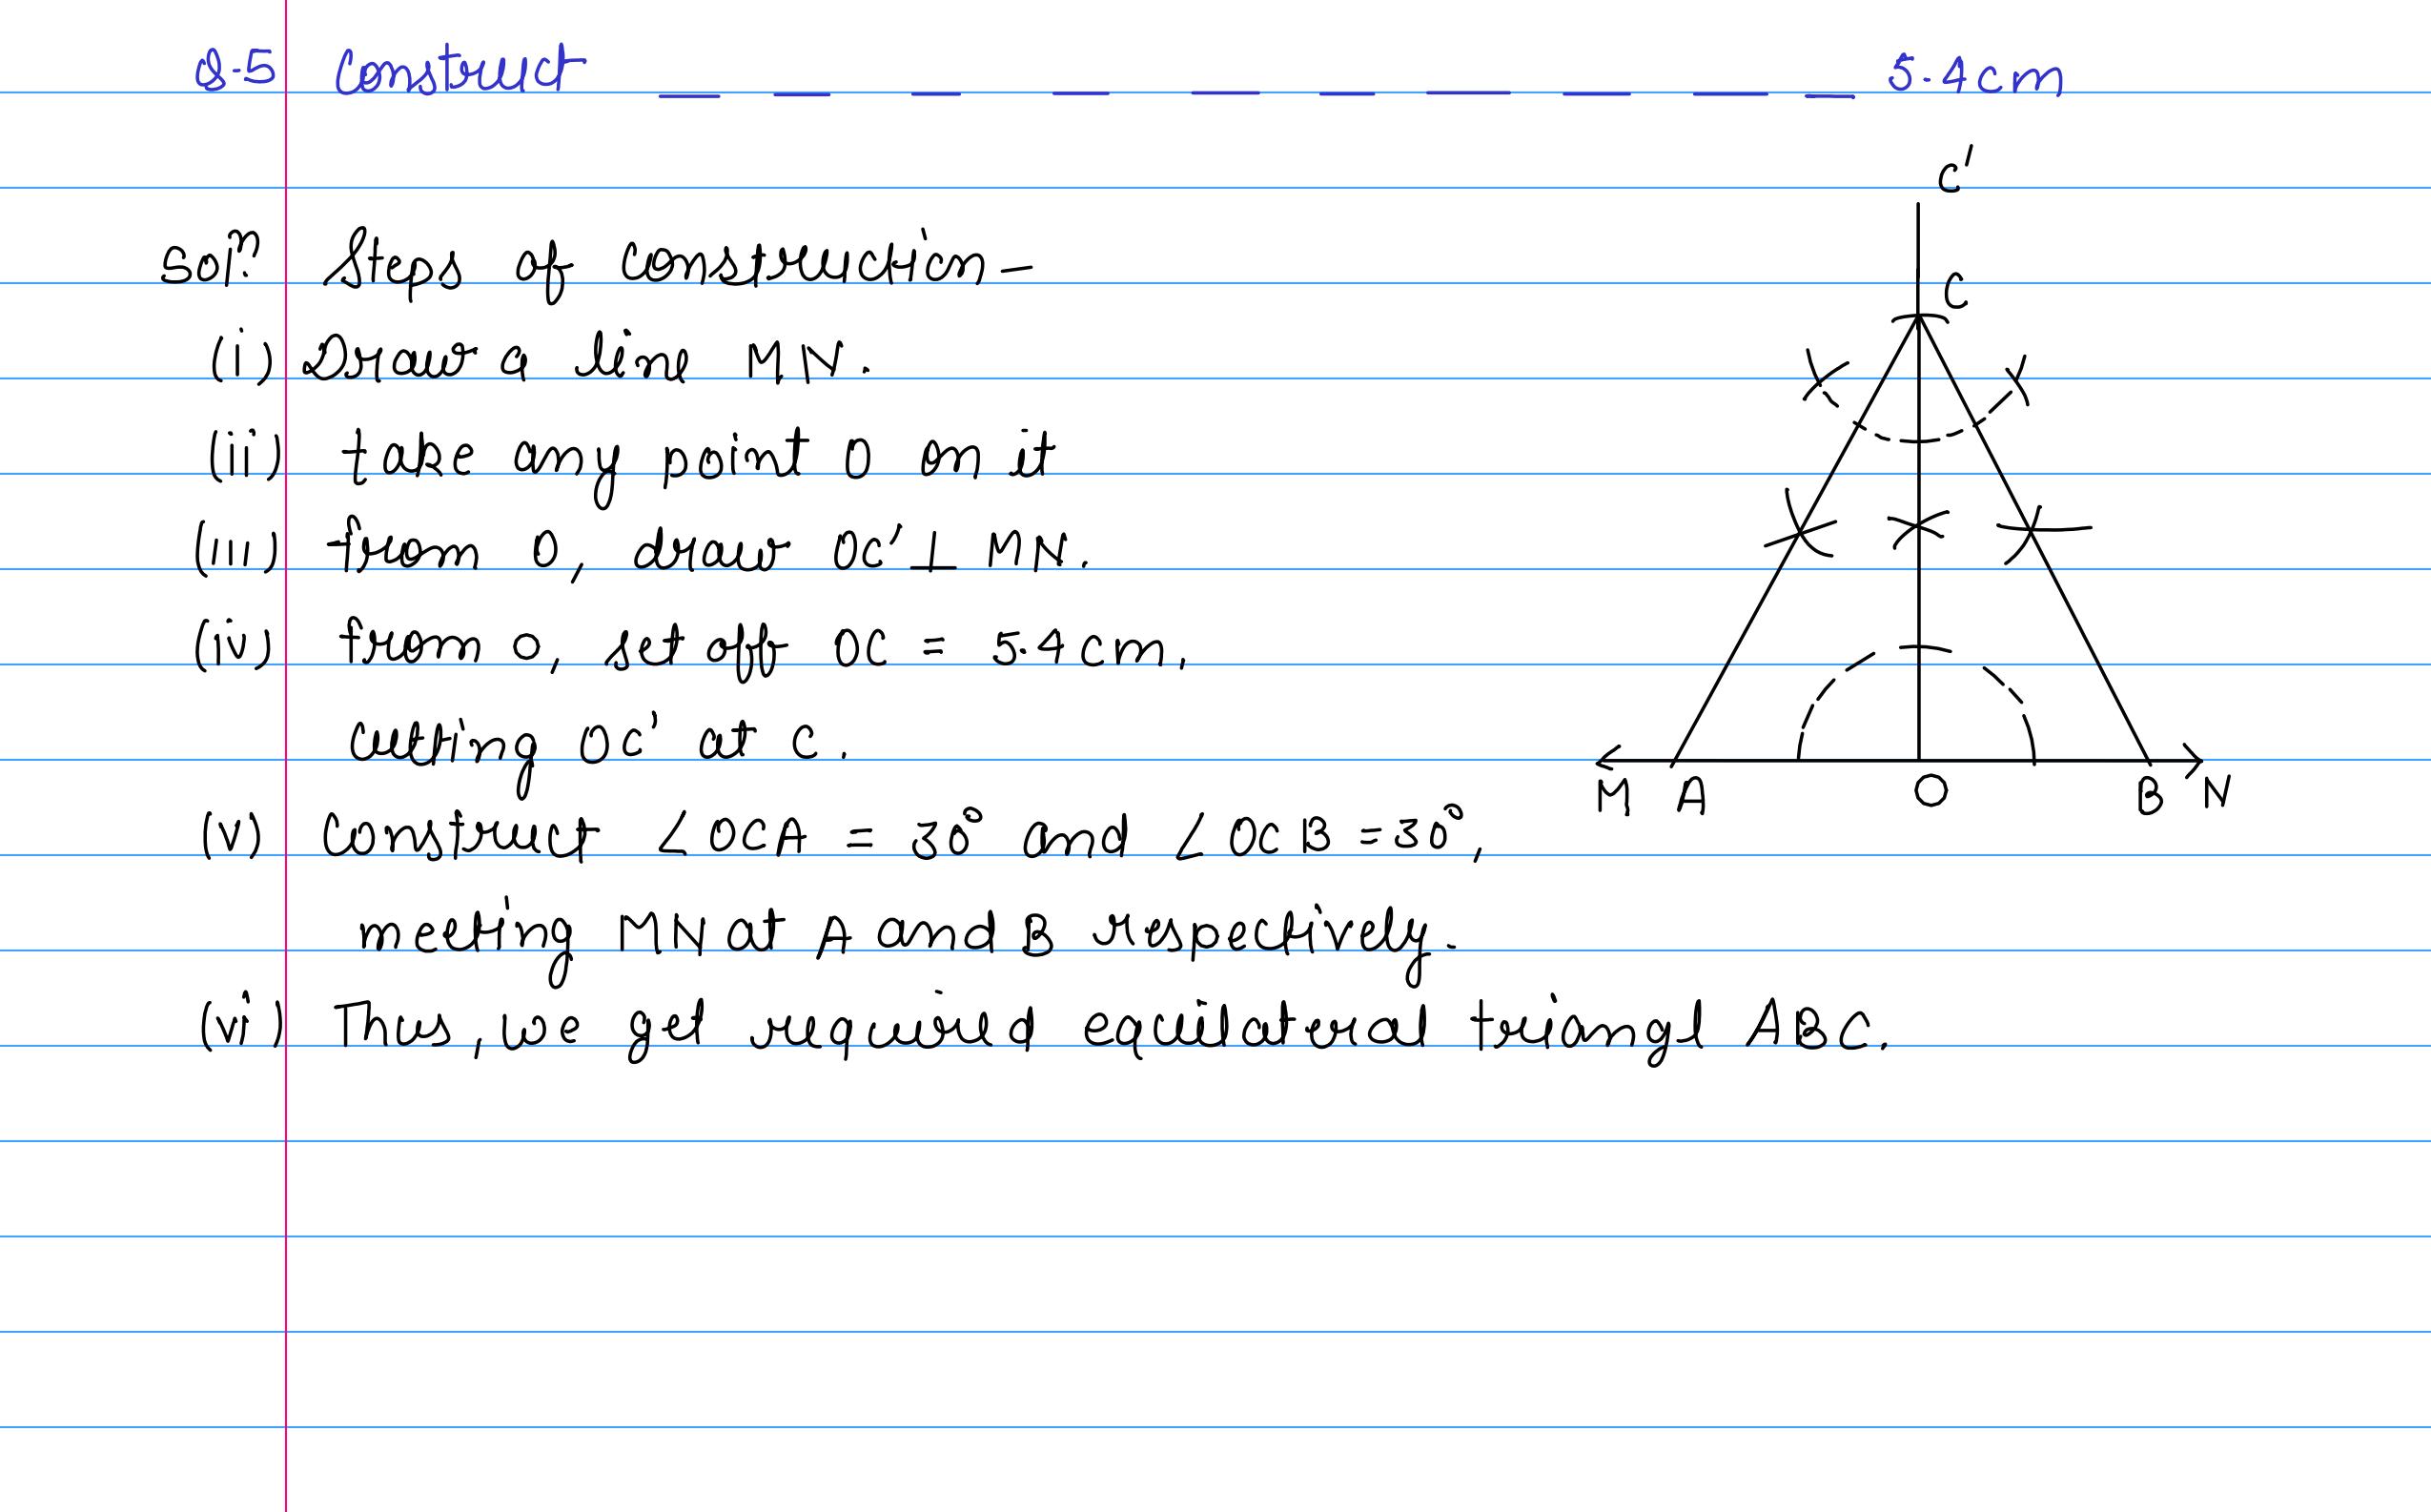 Q-5 Construct _ _ _ _ _ _ _ _ _ _ 5.4cm
Solⁿ. Steps of construction-
(i) Draw a line MN.
(ii) take any point O on it
(iii) from O, draw OC' ⊥ MN.
(iv) from O, set off OC = 5.4cm,
cutting OC' at C.
(v) Construct ∠OCA = 30° and ∠OCB = 30°,
meeting MN at A and B respectively.
(vi) Thus, we get required equilateral triangl ABC.
C'
C
M A O B N